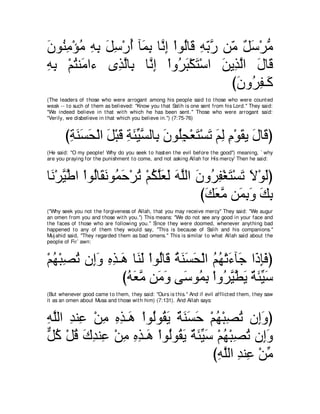 مُّرْسَلٌ مِّن رَّبِّهِ قَالُواْ إِنَّا بِمَآ أُرْسِلَ بِهِ مُؤْمِنُونَ
قَالَ الَّذِينَ اسْتَكْبَرُواْ إِنَّا بِالَّذِى ءَامَنتُمْ بِهِ
كَـفِرُونَ)
(The leaders of those who were arrogant among his people said to those who were counted
weak -- to such of them as believed: "Know you that Salih is one sent from his Lord.'' They said:
"We indeed believe in that with which he has been sent.'' Those who were arrogant said:
"Verily, we disbelieve in that which you believe in.'') (7:75-76)
(قَالَ يقَوْمِ لِمَ تَسْتَعْجِلُونَ بِالسَّيِّئَةِ قَبْلَ الْحَسَنَةِ)
(He said: "O my people! Why do you seek to hasten the evil before the good'') meaning, ` why
are you praying for the punishment to come, and not asking Allah for His mercy' Then he said:
(لَوْلاَ تَسْتَغْفِرُونَ اللَّهَ لَعَلَّكُمْ تُرْحَمُونَقَالُواْ اطَّيَّرْنَا
بِكَ وَبِمَن مَّعَكَ)
("Why seek you not the forgiveness of Allah, that you may receive mercy'' They said: "We augur
an omen from you and those with you.'') This means: "We do not see any good in your face and
the faces of those who are following you.'' Since they were doomed, whenever anything bad
happened to any of them they would say, "This is because of Salih and his companions.''
Mujahid said, "They regarded them as bad omens.'' This is similar to what Allah said about the
people of Fir` awn:
(فَإِذَا جَآءَتْهُمُ الْحَسَنَةُ قَالُواْ لَنَا هَـذِهِ وَإِن تُصِبْهُمْ
سَيِّئَةٌ يَطَّيَّرُواْ بِمُوسَى وَمَن مَّعَهُ)
(But whenever good came to them, they said: "Ours is this.'' And if evil afflicted them, they saw
it as an omen about Musa and those with him) (7:131). And Allah says:
(وَإِن تُصِبْهُمْ حَسَنَةٌ يَقُولُواْ هَـذِهِ مِنْ عِندِ اللَّهِ
وَإِن تُصِبْهُمْ سَيِّئَةٌ يَقُولُواْ هَـذِهِ مِنْ عِندِكَ قُلْ كُلٌّ
مِّنْ عِندِ اللَّهِ)